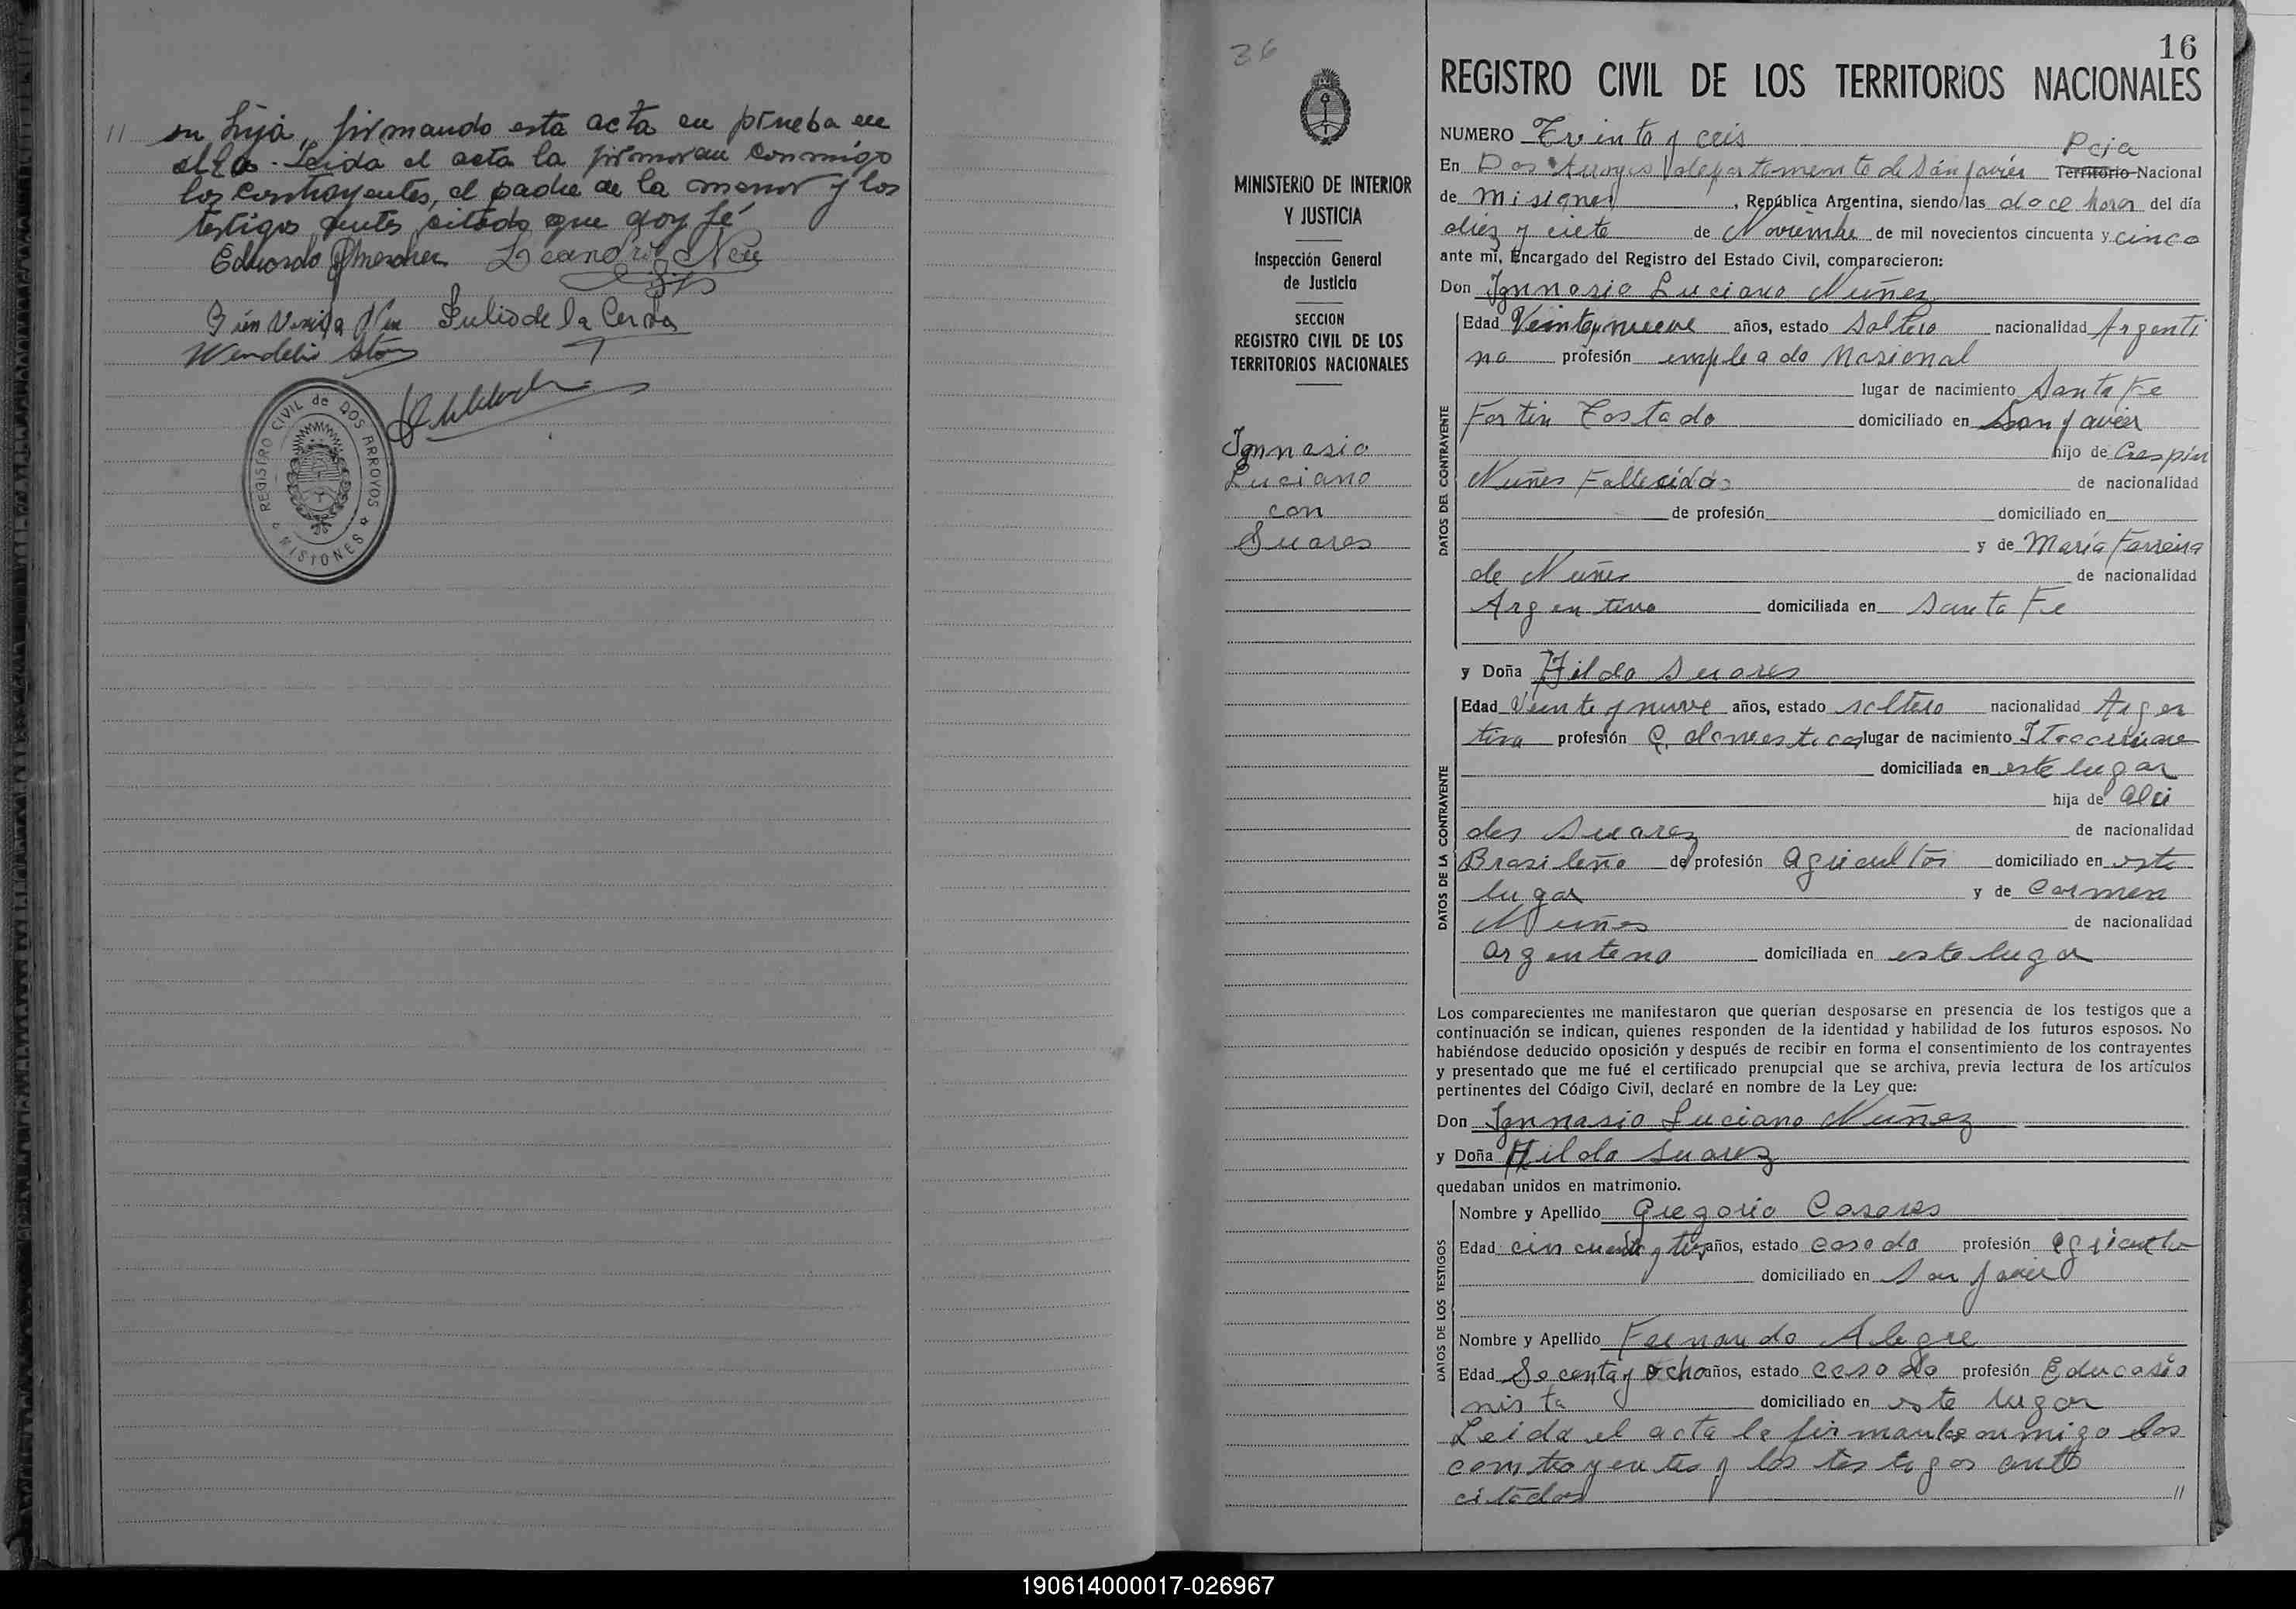 11 su hija, firmando esta acta en prueba de
ello. Leida el acta la firmaran conmigo
los contrayentes, el padre de la menor y los
testigos antes citado que doy fé
Eduardo
Julio de la Cerda
Wendelin
REGISTRO CIVIL de DOS ARROYOS
MISIONES
36
MINISTERIO DE INTERIOR
Y JUSTICIA
Inspección General
de Justicia
SECCION
REGISTRO CIVIL DE LOS
TERRITORIOS NACIONALES
Ignnasio
Luciano
con
Suares
16
REGISTRO CIVIL DE LOS TERRITORIOS NACIONALES
NUMERO Treinta y ceis
Pcia
En Dos Arroyos departamento de San Javier Territorio Nacional
de Misiones, República Argentina, siendo las doce horas del día
diez y ciete de Noviembre de mil novecientos cincuenta y cinco
ante mí, Encargado del Registro del Estado Civil, comparecieron:
Don Ignnasio Luciano Nuñez
DATOS DEL CONTRAYENTE
Edad Veintynueve años, estado Soltero nacionalidad Argenti
no profesión empleado Nasional
lugar de nacimiento Santa Fe
Fortin Tostado domiciliado en San Javier
hijo de Crespin
Nuñes Fallecido de nacionalidad
de profesión domiciliado en
y de María Ferreira
de Nuñes de nacionalidad
Argentina domiciliada en Santa Fe
y Doña Hilda Suares
DATOS DE LA CONTRAYENTE
Edad Veinte y nueve años, estado soltera nacionalidad Argen
tina profesión Q. domesticos lugar de nacimiento Itacaruare
domiciliada en este lugar
hija de Alci
des Suarez de nacionalidad
Brasileño de profesión agricultor domiciliado en este
lugar y de Carmen
Nuñes de nacionalidad
argentina domiciliada en este lugar
Los comparecientes me manifestaron que querían desposarse en presencia de los testigos que a
continuación se indican, quienes responden de la identidad y habilidad de los futuros esposos. No
habiéndose deducido oposición y después de recibir en forma el consentimiento de los contrayentes
y presentado que me fué el certificado prenupcial que se archiva, previa lectura de los artículos
pertinentes del Código Civil, declaré en nombre de la Ley que:
Don Ignnasio Luciano Nuñez
y Doña Hilda Suarez
quedaban unidos en matrimonio.
DATOS DE LOS TESTIGOS
Nombre y Apellido Gregorio Casares
Edad cincuenta y tres años, estado casado profesión agriculto
domiciliado en San Javier
Nombre y Apellido Fernando Alegre
Edad Secenta y ocho años, estado casado profesión Educasio
nista domiciliado en este lugar
Leida el acta la firman conmigo los
contrayentes y los testigos antes
citados 11
190614000017-026967